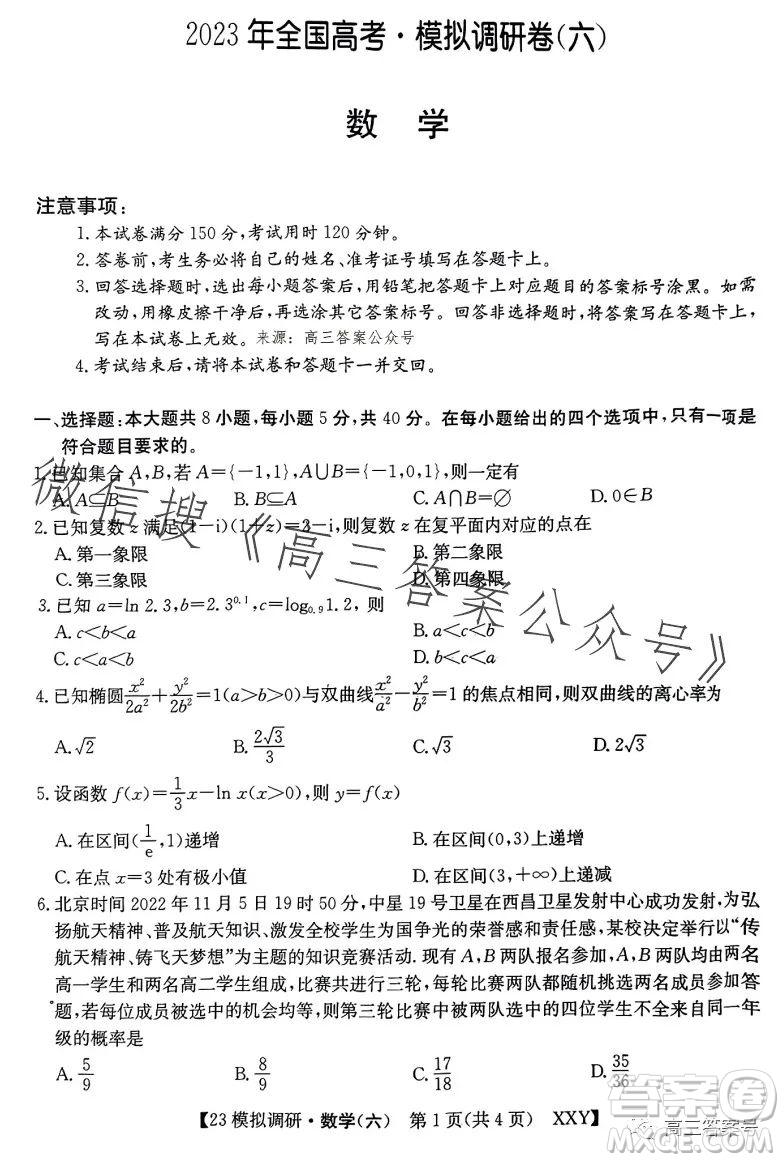 2023年全国高考·模拟调研卷(六)
数 学
注意事项:
1.本试卷满分150分,考试用时120分钟。
2.答卷前,考生务必将自己的姓名、准考证号填写在答题卡上。
3.回答选择题时,选出每小题答案后,用铅笔把答题卡上对应题目的答案标号涂黑。如需改
动,用橡皮擦干净后,再选涂其它答案标号。回答非选择题时,将答案写在答题卡上。
写在本试卷上无效。来源:高三答案公众号
4.考试结束后,请将本试卷和答题卡一并交回。
一、选择题:本大题共8小题,每小题5分,共40分。在每小题给出的四个选项中,只有一项是
符合题目要求的。
1.已知集合A,B,若A={-1,1},A∪B={-1,0,1},则一定有
A.A⊆B B.B⊆A C.A∩B=∅ D.0∈B
2.已知复数z满足(1-i)(1+z)=3-i,则复数z在复平面内对应的点在
A.第一象限 B.第二象限
C.第三象限 D.第四象限
3.已知a=ln 2.3,b=2.3^0.1,c=log_0.9 1.2,则
A.c<b<a B.a<c<b
C.c<a<b D.b<c<a
4.已知椭圆x²/2a²+y²/2b²=1(a>b>0)与双曲线x²/a²-y²/b²=1的焦点相同,则双曲线的离心率为
A.√2 B.2√3/3 C.√3 D.2√3
5.设函数f(x)=1/3x-ln x(x>0),则y=f(x)
A.在区间(1/e,1)递增 B.在区间(0,3)上递增
C.在点x=3处有极小值 D.在区间(3,+∞)上递减
6.北京时间2022年11月5日19时50分,中星19号卫星在西昌卫星发射中心成功发射,为弘
扬航天精神、普及航天知识、激发全校学生为国争光的荣誉感和责任感,某校决定举行以“传
航天精神、铸飞天梦想”为主题的知识竞赛活动.现有A,B两队报名参加,A,B两队均由两名
高一学生和两名高二学生组成,比赛共进行三轮,每轮比赛两队都随机挑选两名成员参加答
题,若每位成员被选中的机会均等,则第三轮比赛中被两队选中的四位学生不全来自同一年
级的概率是
A.5/9 B.8/9 C.17/18 D.35/36
【23模拟调研·数学(六) 第1页(共4页) XXY】
微信搜《高三答案公众号》
答案卷
高三答案号
MXQE.COM